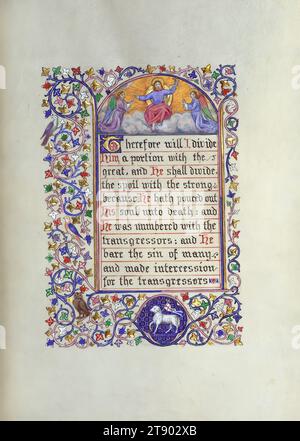 Therefore will I divide
Him a portion with the
great, and He shall divide
the spoil with the strong
because He hath poured out
His soul unto death; and
He was numbered with the
transgressors; and He
bare the sin of many,
and made intercession
for the transgressors
alamy
Image ID: 2T902XB
www.alamy.com